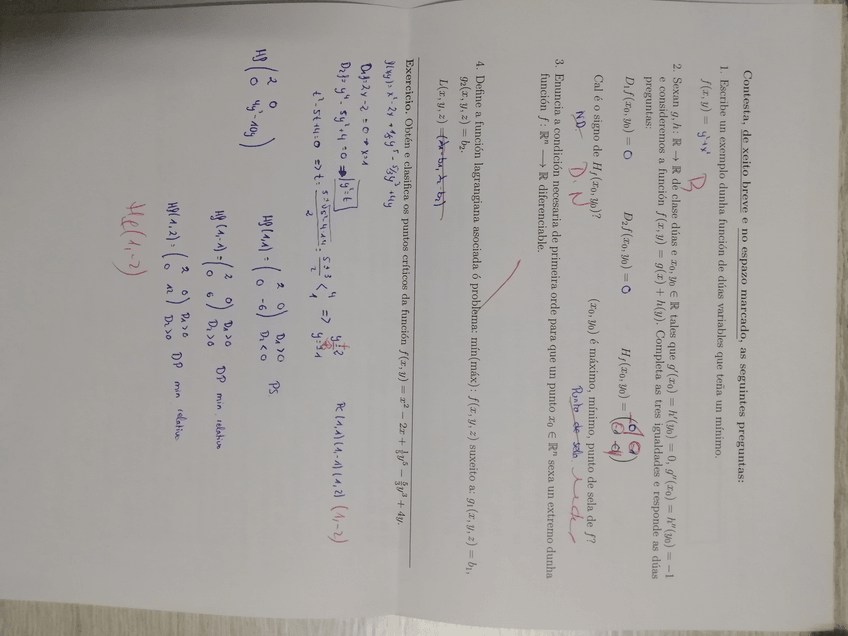 Contesta, de xeito breve e no espazo marcado, as seguintes preguntas:
1. Escribe un exemplo dunha función de dúas variables que teña un mínimo.
f(x, y) = y²+x²
2. Sexan g, h : ℝ → ℝ de clase dúas e x₀, y₀ ∈ ℝ tales que g'(x₀) = h'(y₀) = 0, g''(x₀) = h''(y₀) = −1
e consideremos a función f(x, y) = g(x) + h(y). Completa as tres igualdades e responde as dúas
preguntas:
D₁f(x₀, y₀) = 0 D₂f(x₀, y₀) = 0 H_f(x₀, y₀) =
Cal é o signo de H_f(x₀, y₀)? (x₀, y₀) é máximo, mínimo, punto de sela de f?
ND D.N Punto de sela
3. Enuncia a condición necesaria de primeira orde para que un punto x₀ ∈ ℝⁿ sexa un extremo dunha
función f : ℝⁿ ⟶ ℝ diferenciable.
4. Define a función lagrangiana asociada ó problema: mín(máx): f(x, y, z) suxeito a: g₁(x, y, z) = b₁,
g₂(x, y, z) = b₂.
L(x, y, z) =
Exercicio. Obtén e clasifica os puntos críticos da función f(x, y) = x² − 2x + ⅕y⁵ − 5/3y³ + 4y.
f(x,y) = x²-2x + 1/5 y⁵ - 5/3 y³ + 4y
D₁f = 2x - 2 = 0 → x=1
D₂f = y⁴ - 5y² + 4 = 0 ⇒ y²=t PC (1,1) (1,-1) (1,2) (1,-2)
t² - 5t + 4 = 0 ⇒ t = 5±√5²-4·1·4 / 2 = 5±3 / 2 < 4 1 ⇒ y=±2 y=±1
Hf (2 0
0 4y³-10y)
Hf(1,1) = (2 0
0 -6) D₁>0 D₂<0 PS
Hf(1,-1) = (2 0
0 6) D₁>0 D₂>0 DP min relativo
Hf(1,2) = (2 0
0 12) D₁>0 D₂>0 DP min relativo
Hf(1,-2)